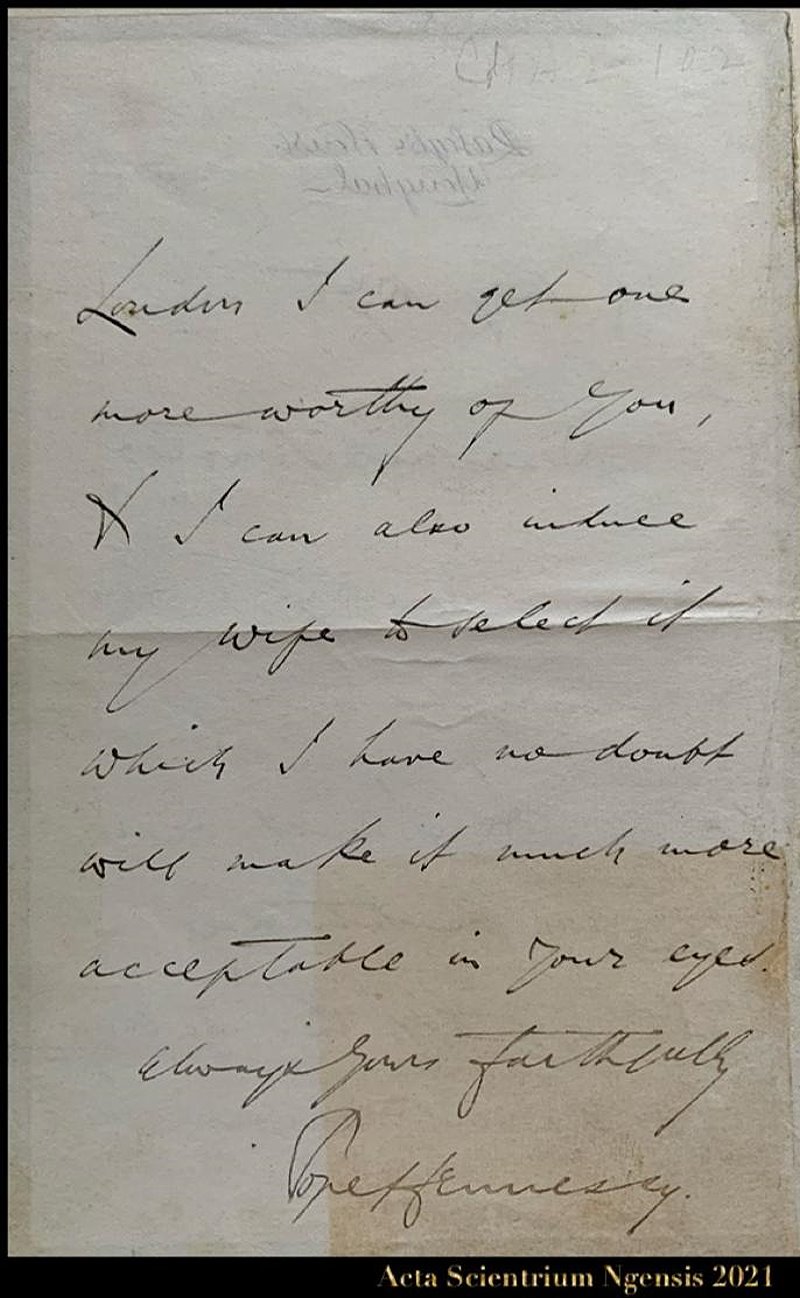 London I can get one
more worthy of you,
& I can also induce
my wife to select it
which I have no doubt
will make it much more
acceptable in your eyes.
Always Yours faithfully
J Pope Hennessy.
Acta Scientrium Ngensis 2021